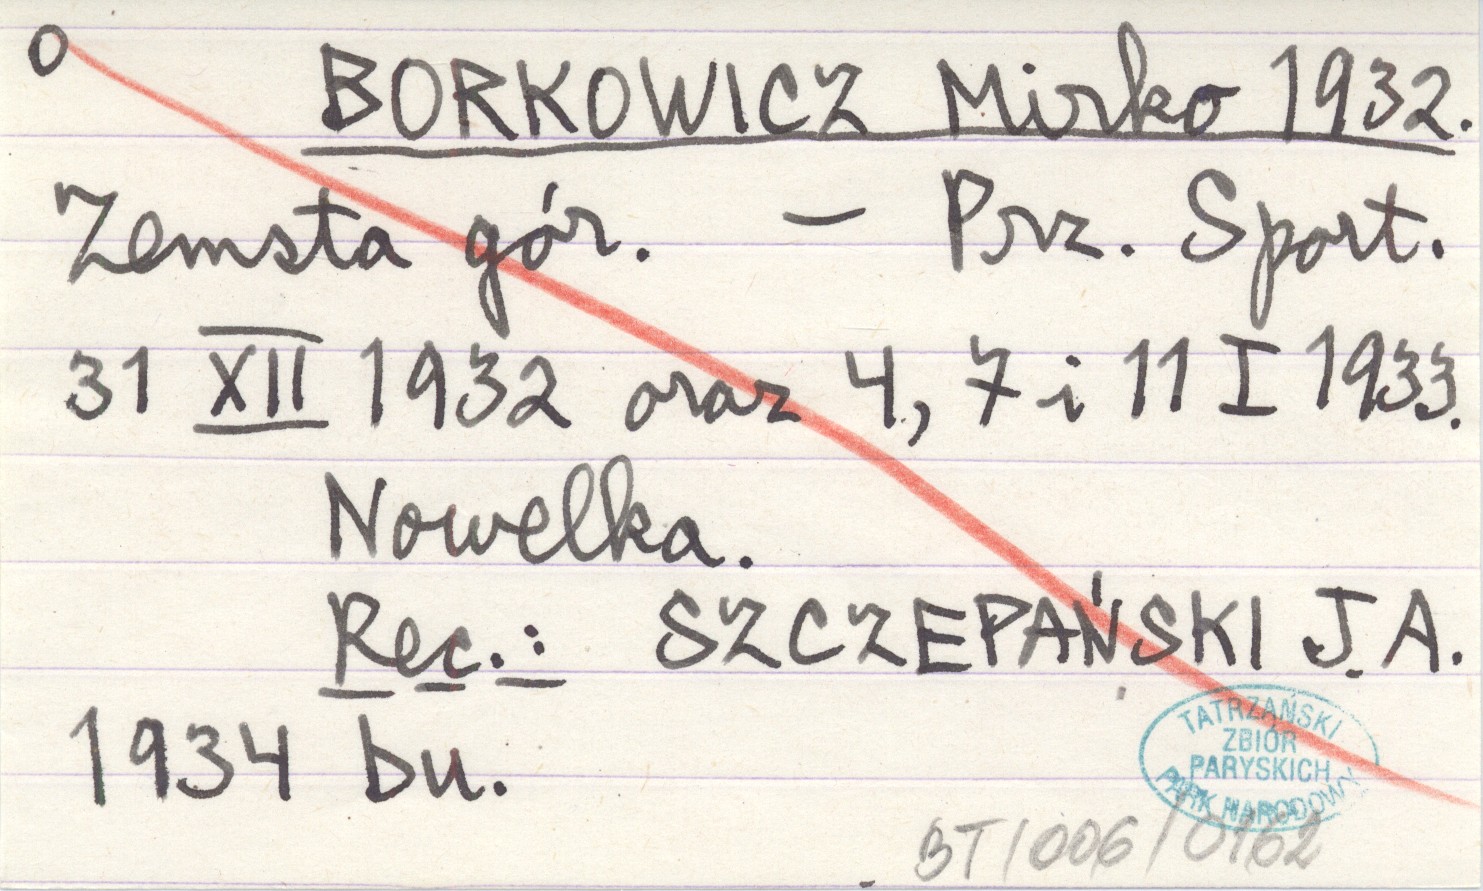 O
BORKOWICZ Mirko 1932.
Zemsta gór. — Prz. Sport.
31 XII 1932 oraz 4, 7 i 11 I 1933.
Nowelka.
Rec.: SZCZEPAŃSKI J.A.
1934 bu.
TATRZAŃSKI
ZBIÓR
PARYSKICH
PARK NARODOWY
BT/006/0162